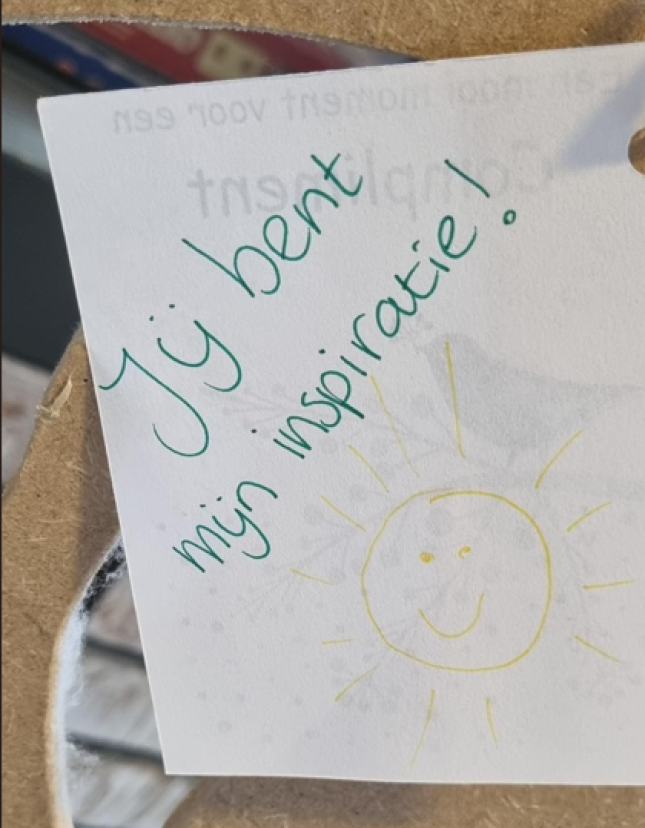 Jij bent
mijn inspiratie!
Een mooi moment voor een
Compliment